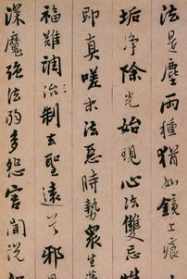 法是塵兩種猶如鏡上痕
垢淨除光始現心法雙忘
即真嗟末法惡時勢眾生
福難調治製去聖遠兮邪
深魔強法弱多怨害聞說如